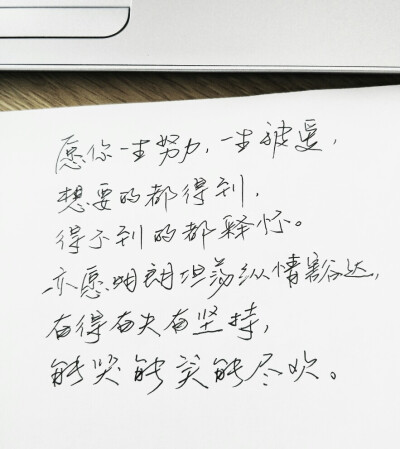 愿你一生努力，一生被爱，
想要的都得到，
得不到的都释怀。
亦愿明朗坦荡纵情豁达，
有得有失有坚持，
能哭能笑能尽欢。